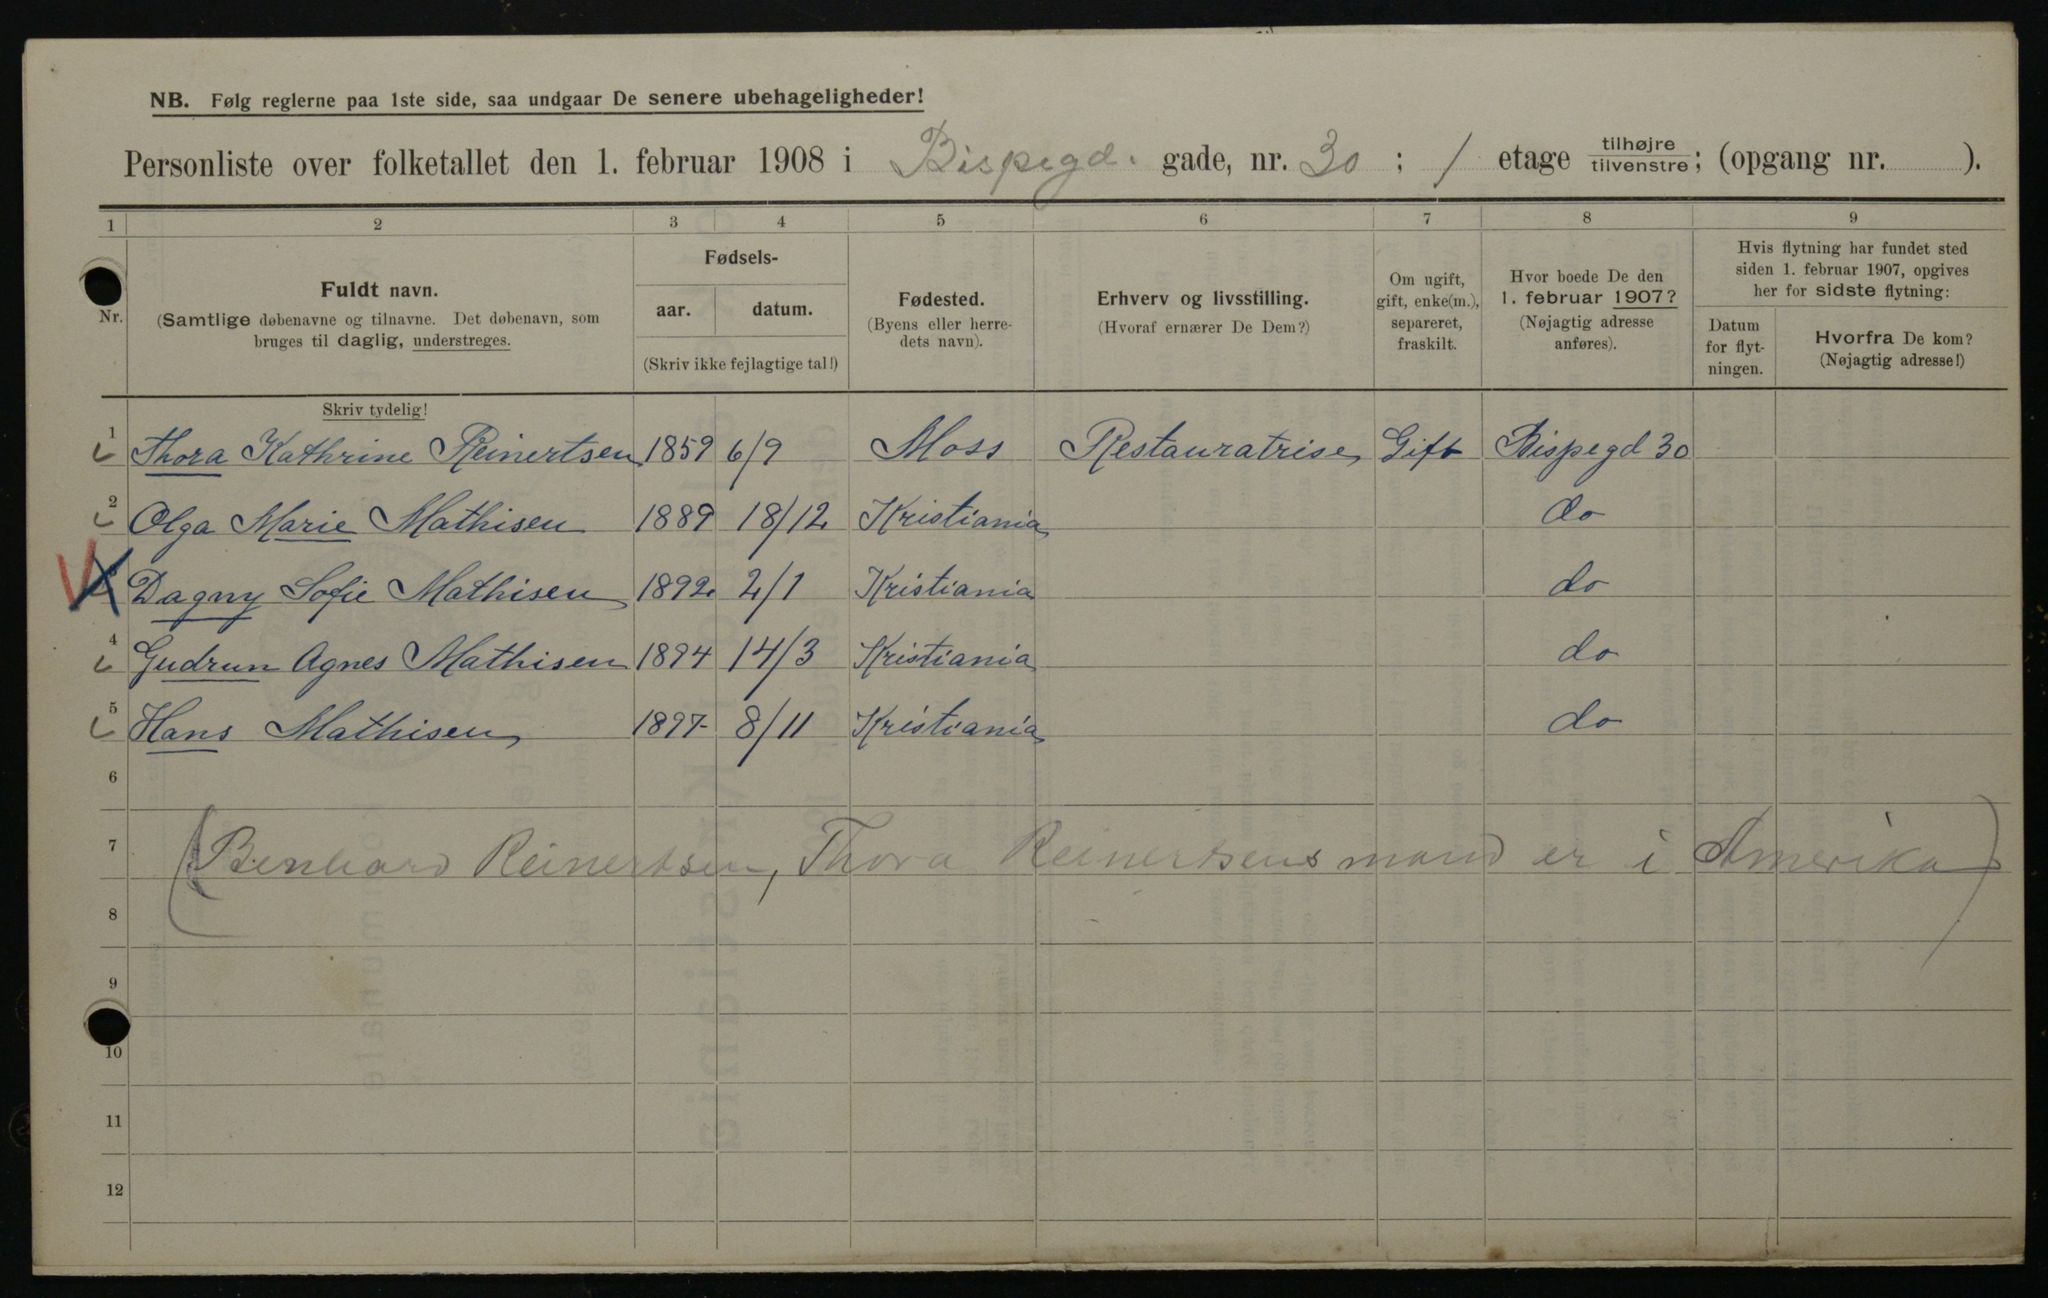 NB. Følg reglerne paa 1ste side, saa undgaar De senere ubehageligheder!
Personliste over folketallet den 1. februar 1908 i Bispegd. gade, nr. 30 ; 1 etage tilhøjre/tilvenstre; (opgang nr. ).
1 2 3 4 5 6 7 8 9
Nr.
Fuldt navn.
(Samtlige døbenavne og tilnavne. Det døbenavn, som
bruges til daglig, understreges.
Skriv tydelig!
Fødsels-
aar. datum.
(Skriv ikke fejlagtige tal!)
Fødested.
(Byens eller herre-
dets navn).
Erhverv og livsstilling.
(Hvoraf ernærer De Dem?)
Om ugift,
gift, enke(m.),
separeret,
fraskilt.
Hvor boede De den
1. februar 1907?
(Nøjagtig adresse
anføres).
Hvis flytning har fundet sted
siden 1. februar 1907, opgives
her for sidste flytning:
Datum
for flyt-
ningen.
Hvorfra De kom?
(Nøjagtig adresse!)
1 Thora Kathrine Reinertsen 1859 6/9 Moss Restauratrise Gift Bispegd 30
2 Olga Marie Mathisen 1889 18/12 Kristiania do
Dagny Sofie Mathisen 1892 2/1 Kristiania do
4 Gudrun Agnes Mathisen 1894 14/3 Kristiania do
5 Hans Mathisen 1897 8/11 Kristiania do
6
7 (Benhard Reinertsen, Thora Reinertsens mand er i Amerika)
8
9
10
11
12